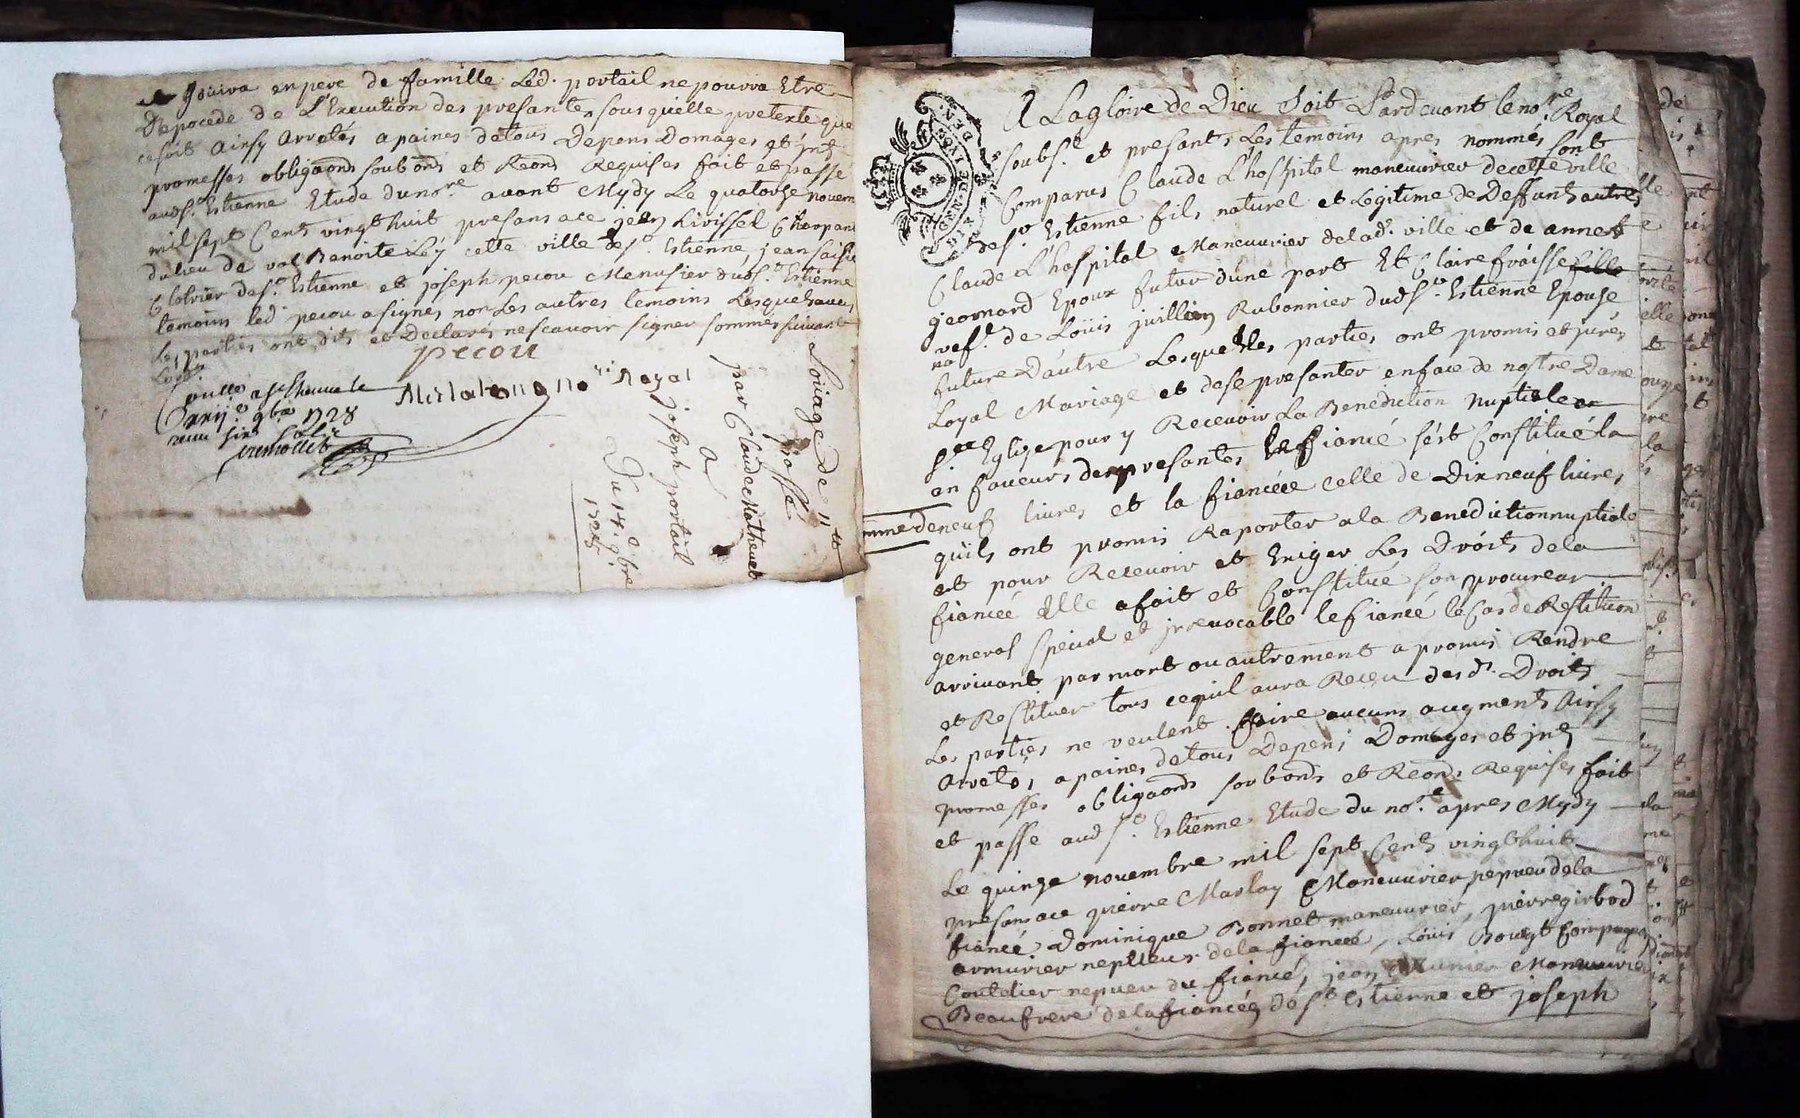 Jouira en pere de famille Led. portail ne pourra Etre
Depocede de L'Execution des presantes sous quelle pretexte que
cesoit Ainsy Arretés a paines detous Depens Domages et jnts
promesses obligaons soubons et Reons Requises fait et passé
audst. Estienne Etude dunore avant Mydy Le quatorze novem
mil sept Cents vingt huit presans ace jean Charpan
dulieu de val Benoite Léz cette ville de st. Estienne, jean
de st. Estienne et joseph pecou Menusier dudst. Estienne
temoins led pecou a signes non Les autres temoins Lesquels avec
Les parties ont dits et Declarés nescavoir signer sommés suivant
Loys
pecou
Controllé a st Etienne le
9bre 1728
recu six sols
no re Royal
Loüage de 11tt
passé
par Claude Mathevet
A
joseph portail
Du 14e 9bre
1728
A La gloire de Dieu Soit Pardevant le nore Royal
soubst. et presants Les temoins apres nommés sont
Comparus Claude L'hospital maneuvrier decette ville
dest. Estienne fils naturel et Legitime de Deffunts autre
Claude L'hospital Maneuvrier delad. ville et de anne
geornard Epoux futur d'une part Et Claire fraisse fille
vefe. de Loüis juillien Rubannier dudst. Estienne Epouse
future D'autre Lesquelles parties ont promis et jurés
Loyal Mariage et dese presanter enface de nostre Dame
ste Eglize pour y Recevoir La Benediction nuptiale
en faveurs des presantes Le fiancé s'est Constitué la
somme deneuf livres et la fiancée celle de Dixneuf livres
quils ont promis Raporter ala Benediction nuptiale
et pour Recevoir et Exiger Les Droits dela
fiancée Elle a fait et Constitué son procureur
general special et jrrevocable le fiancé le Cas de Restitution
arrivant par mort ou autrement a promis Rendre
et Restituer tous cequil aura Receu des d. Droits
Les parties ne veulent faire aucuns augments Ainsy
Arretés a paines detous Depens Domages et jnts
promesses obligaons soubons et Reons Requises fait
et passe aud st. Estienne Etude du nore. apres Mydy
Le quinze novembre mil sept Cents vingt huit
presans ace pierre Marlay Maneuvrier nepveu dela
fiancée Dominique Bonnet maneuvrier, pierre girbod
armurier nepveux dela fiancée, Loüis Compagnon
Coutelier nepveu du fiancé, jean Maneuvrier
Beaufrere dela fiancée de st Estienne et joseph